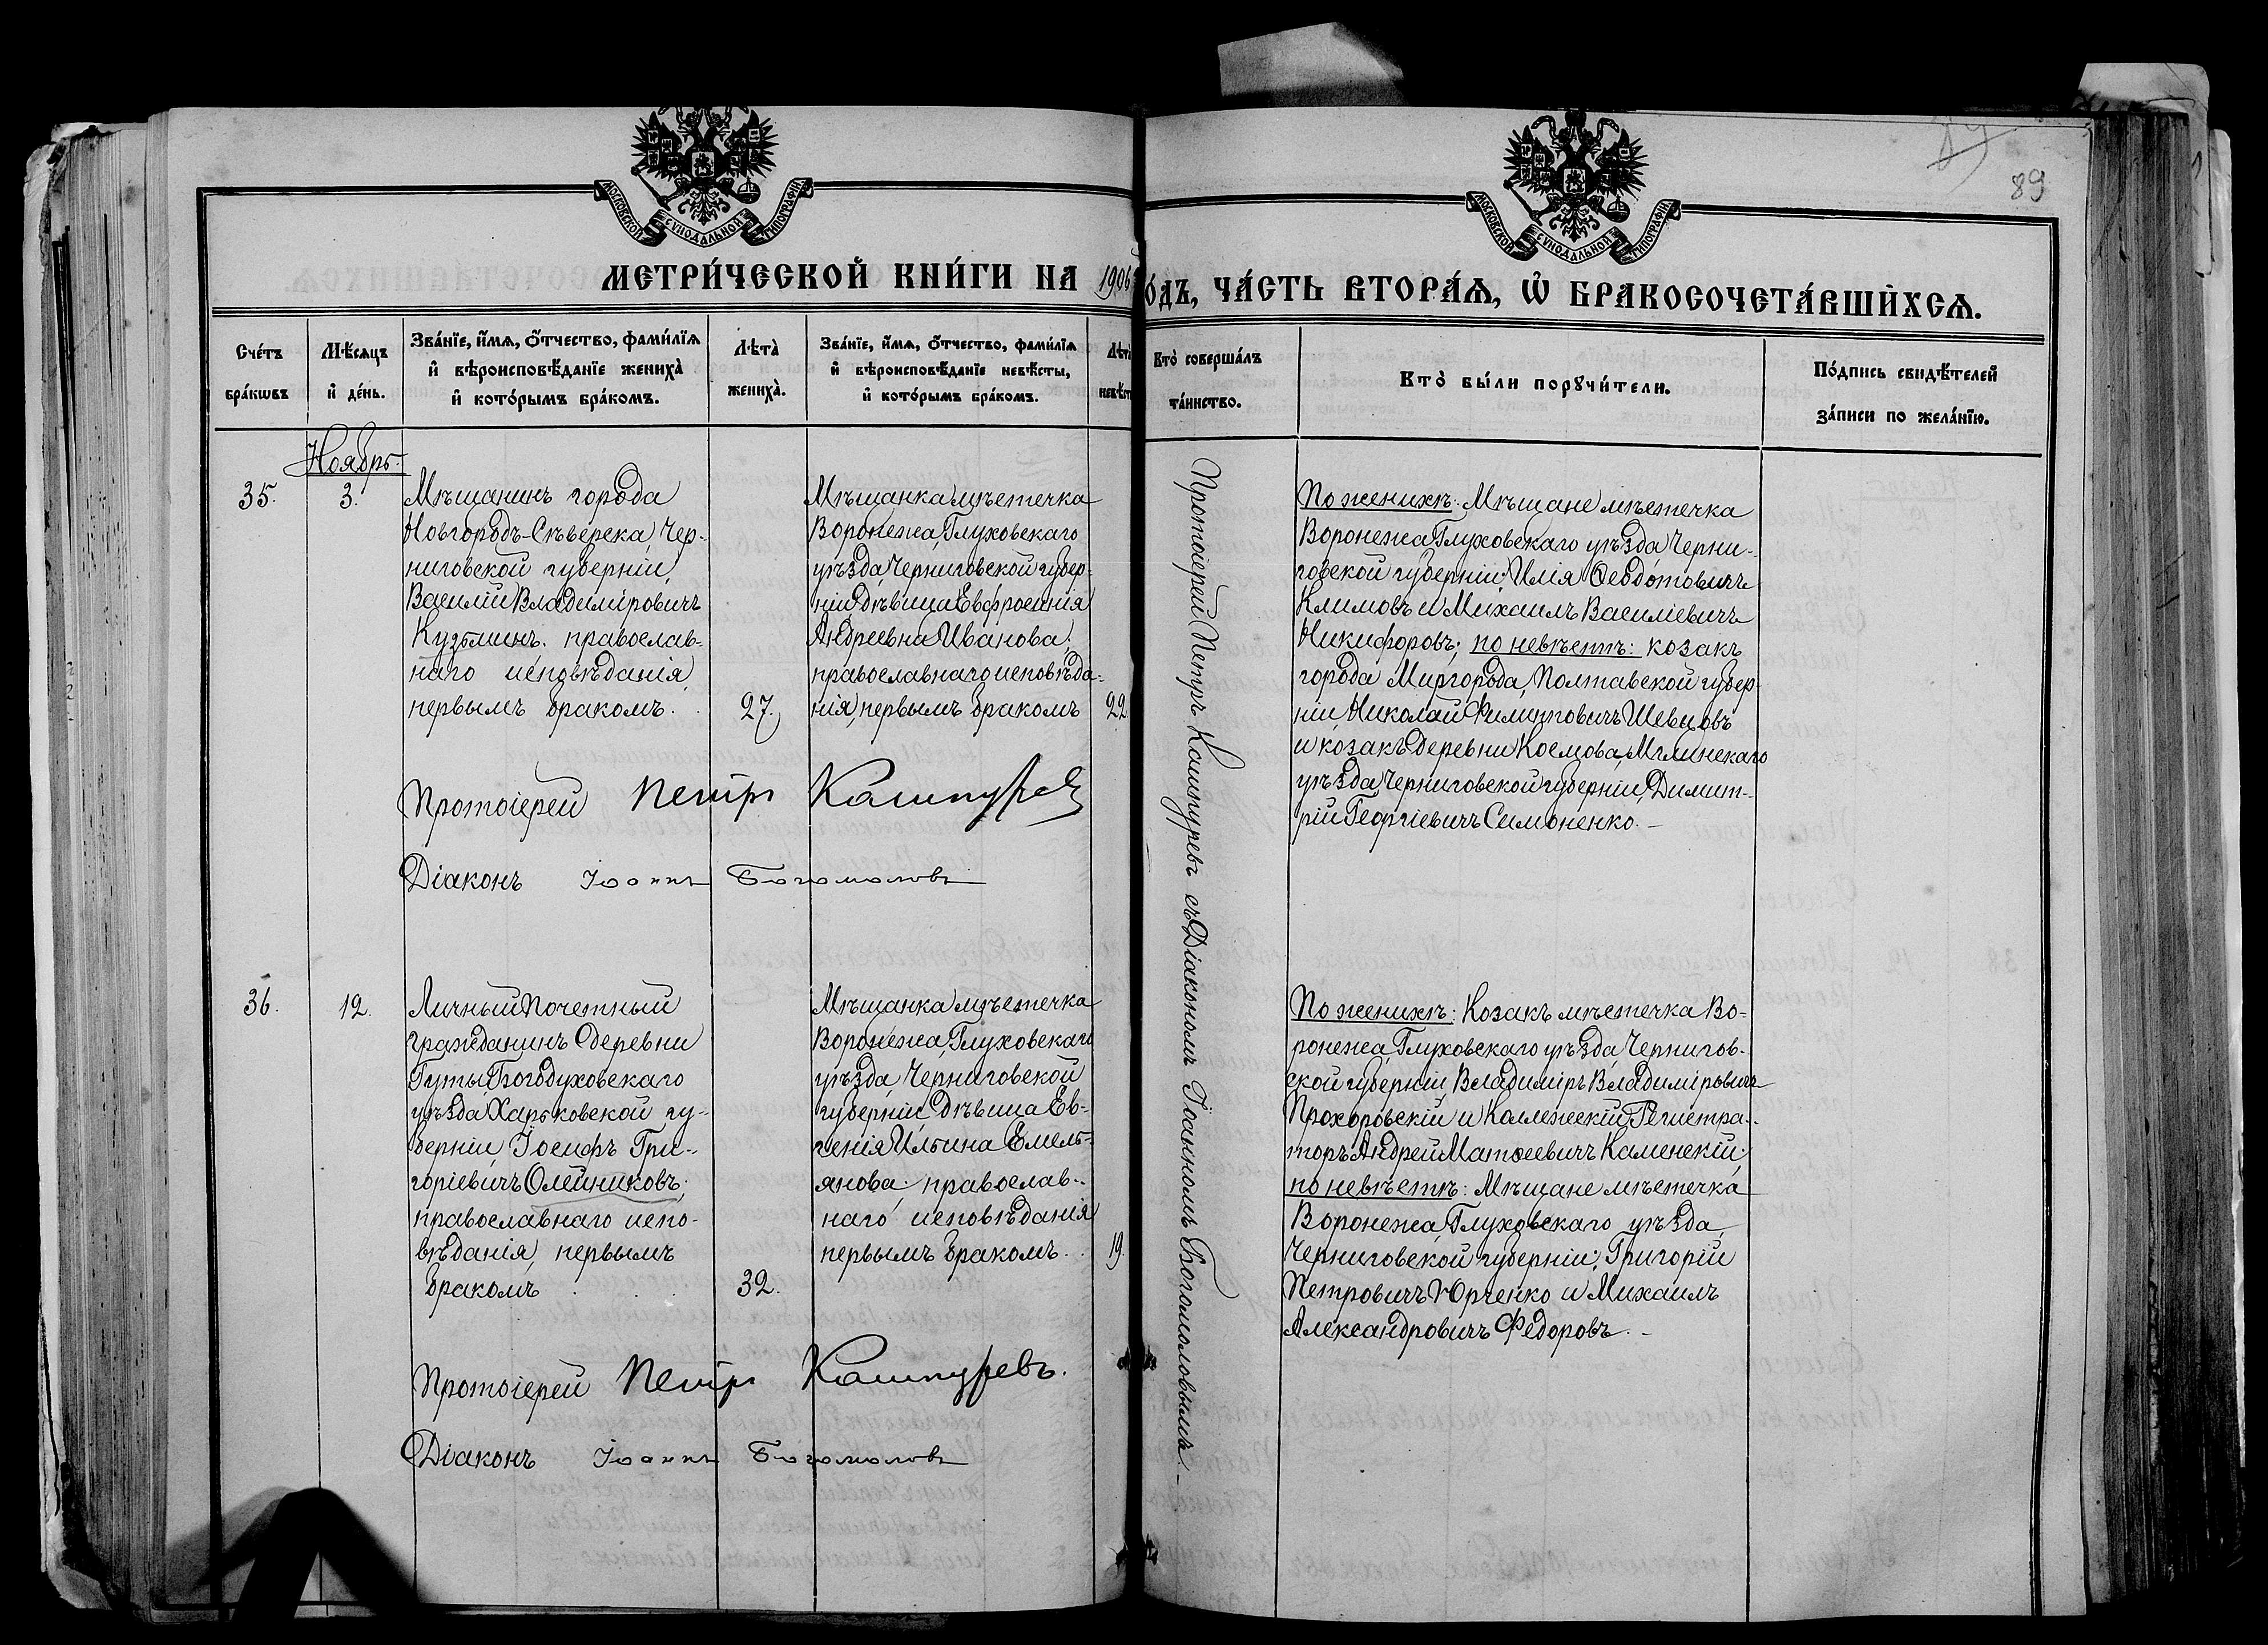 89
МОСКОВСКОЙ СУНОДАЛЬНОЙ ТИПОГРАФІИ
МОСКОВСКОЙ СУНОДАЛЬНОЙ ТИПОГРАФІИ
МЕТРИ́ЧЕСКОЙ КНИ́ГИ НА 1906
О́ДЪ, ЧА́СТЬ ВТОРА́Ѧ, Ѡ҆ БРАКОСОЧЕТА́ВШИХСѦ.
Сче́тъ
бра́кѡвъ
Мѣ́сяцъ
и҆ де́нь.
Зва́нїе, и҆́мѧ, ѻ҆́тчество, фами́лїѧ
и҆ вѣроисповѣ́данїе жениха̀
и҆ кото́рымъ бра́комъ.
Лѣта̀
жениха̀.
Зва́нїе, и҆́мѧ, ѻ҆́тчество, фами́лїѧ
и҆ вѣроисповѣ́данїе невѣ́сты,
и҆ кото́рымъ бра́комъ.
Лѣта̀
невѣ́ст
Кто̀ соверша́лъ
та́инство.
Кто̀ бы́ли порꙋчи́тели.
По́дпись свидѣ́телей
за́писи по жела́нїю.
Ноябрь.
35.
3.
Мѣщанинъ города
Новгородъ-Сѣверска, Чер-
ниговской губерніи,
Василій Владиміровичъ
Кузьминъ. православ-
наго исповѣданія,
первымъ бракомъ.
27.
Мѣщанка мѣстечка
Воронежа, Глуховскаго
уѣзда, Черниговской губер-
ніи дѣвица Евфросинія
Андреевна Иванова;
православнаго исповѣда-
нія, первымъ бракомъ
22
Протоіерей Петръ Кашпуревъ съ Діакономъ Іоанномъ Богомоловымъ.
По женихѣ: Мѣщане мѣстечка
Воронежа Глуховскаго уѣзда Черни-
говской губерніи: Илія Ѳеодотовичъ
Климовъ и Михаилъ Василіевичъ
Никифоровъ; по невѣстѣ: козакъ
города Миргорода, Полтавской губер-
ніи, Николай Филипповичъ Шевцовъ
и козакъ деревни Космова, Мглинскаго
уѣзда, Черниговской губерніи, Димит-
рій Георгіевичъ Симоненко.
Протоіерей Петръ Кашпуревъ
Діаконъ Іоаннъ Богомоловъ
36.
12.
Личный Почетный
гражданинъ деревни
Гуты, Богодуховскаго
уѣзда, Харьковской гу-
берніи, Іосифъ Гри-
горіевичъ Олейниковъ;
православнаго испо-
вѣданія, первымъ
бракомъ
32.
Мѣщанка мѣстечка
Воронежа, Глуховскаго
уѣзда, Черниговской
губерніи дѣвица Ев-
генія Ильина Емель-
янова; православ-
наго исповѣданія
первымъ бракомъ.
19.
По женихѣ: Козакъ мѣстечка Во-
ронежа, Глуховскаго уѣзда, Чернигов-
ской губерніи, Владиміръ Владиміровичъ
Прохоровскій и Коллежскій Регистра-
торъ Андрей Матѳеевичъ Каменскій;
по невѣстѣ: Мѣщане мѣстечка
Воронежа, Глуховскаго уѣзда,
Черниговской губерніи; Григорій
Петровичъ Юрченко и Михаилъ
Александровичъ Федоровъ.
Протоіерей Петръ Кашпуревъ.
Діаконъ Іоаннъ Богомоловъ